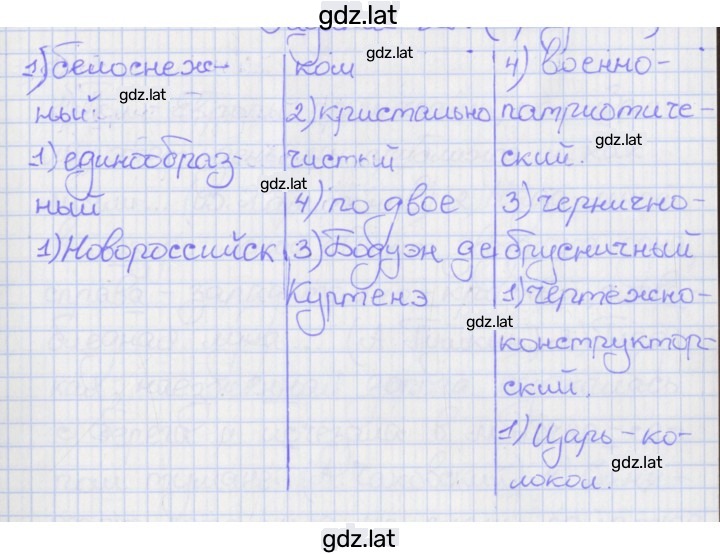 gdz.lat
1) белоснеж-
ный.
1) единообраз-
ный
1) Новороссийск
ком
2) кристально
чистый
4) по двое
3) Бодуэн де
Куртенэ
4) военно-
патриотиче-
ский.
3) чернично-
брусничный
1) чертёжно-
конструктор-
ский.
1) Царь-ко-
локол.
gdz.lat
gdz.lat
gdz.lat
gdz.lat
gdz.lat
gdz.lat
gdz.lat